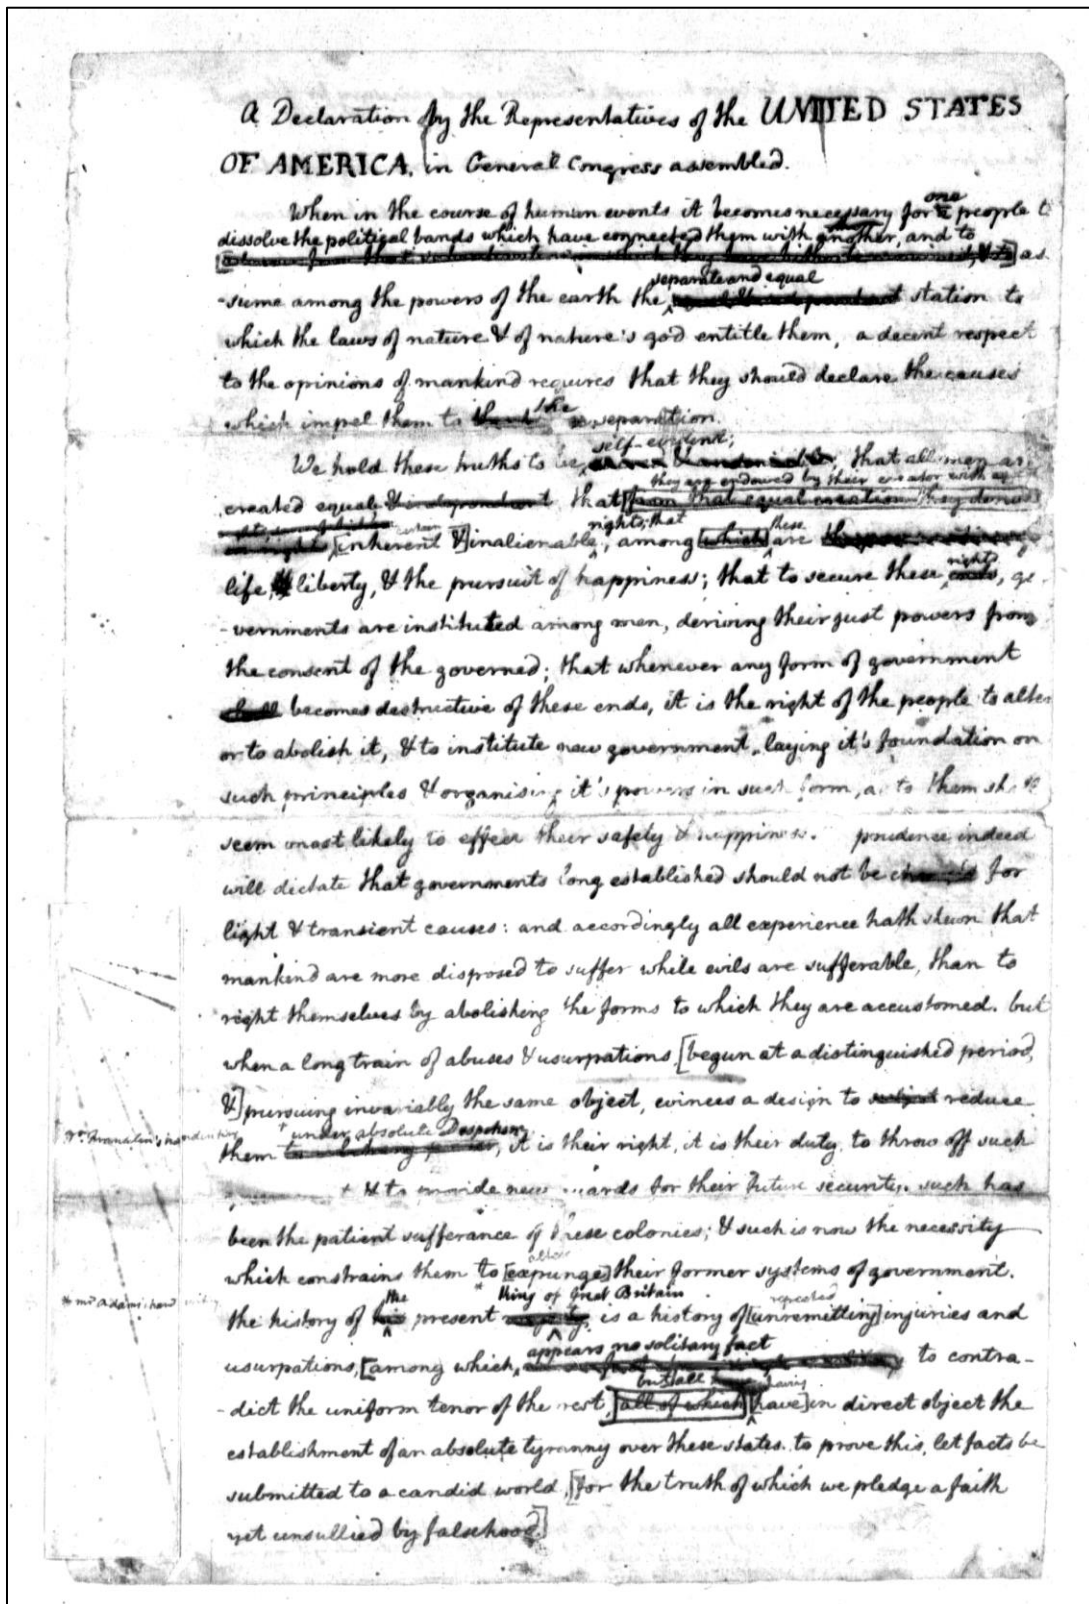 A Declaration by the Representatives of the UNITED STATES
OF AMERICA, in General Congress assembled.
one
When in the course of human events it becomes necessary for people t
dissolve the political bands which have connected them with another, and to
as
separate and equal
-sume among the powers of the earth the station to
which the laws of nature & of nature's god entitle them, a decent respect
to the opinions of mankind requires that they should declare the causes
the
which impel them to separation.
self-evident;
We hold these truths to be , that all men ar
they are endowed by their creator with
created equal & independent that [from that equal creation they derive
rights; that these
[inherent &] inalienable, among [which] are
rights
life, liberty, & the pursuit of happiness; that to secure these ends, go
-vernments are instituted among men, deriving their just powers from
the consent of the governed; that whenever any form of government
shall becomes destructive of these ends, it is the right of the people to alter
or to abolish it, & to institute new government, laying it's foundation on
such principles & organising it's powers in such form, as to them sh
seem most likely to effect their safety & happiness. prudence indeed
will dictate that governments long established should not be for
light & transient causes: and accordingly all experience hath shewn that
mankind are more disposed to suffer while evils are sufferable, than to
right themselves by abolishing the forms to which they are accustomed. but
when a long train of abuses & usurpations, [begun at a distinguished period,
&] pursuing invariably the same object, evinces a design to reduce
under absolute Despotism
them , it is their right, it is their duty, to throw off such
& to provide new guards for their future security. such has
been the patient sufferance of these colonies; & such is now the necessity
alter
which constrains them to [expunge] their former systems of government.
the king of Great Britain repeated
the history of his present is a history of [unremitting] injuries and
appears no solitary fact
usurpations, [among which, to contra-
but all having
-dict the uniform tenor of the rest, [all of which] [have] in direct object the
establishment of an absolute tyranny over these states. to prove this, let facts be
submitted to a candid world, [for the truth of which we pledge a faith
yet unsullied by falsehood.]